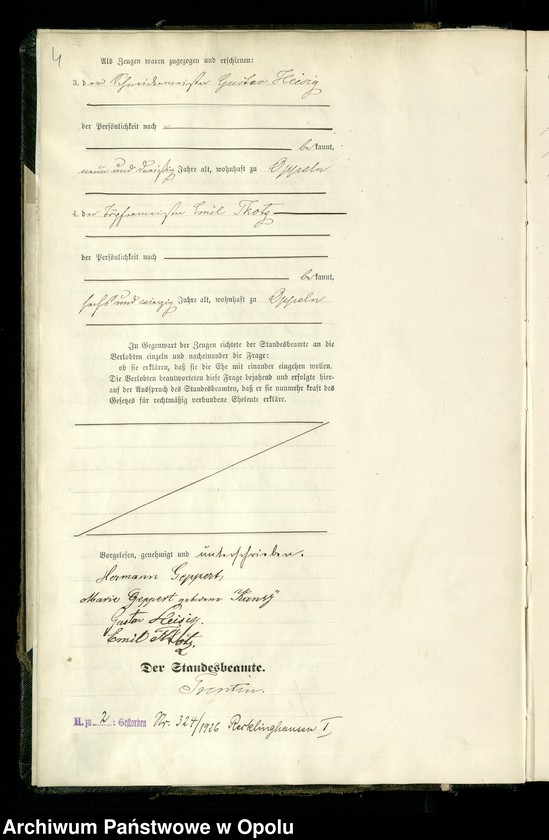 4
Als Zeugen waren zugezogen und erschienen:
3. der Schneidermeister Gustav Heisig
der Persönlichkeit nach
be kannt,
neun und dreißig Jahre alt, wohnhaft zu Oppeln
4. der Töpfermeister Emil Tkotz
der Persönlichkeit nach
be kannt,
sechs und vierzig Jahre alt, wohnhaft zu Oppeln
In Gegenwart der Zeugen richtete der Standesbeamte an die
Verlobten einzeln und nacheinander die Frage:
ob sie erklären, daß sie die Ehe mit einander eingehen wollen.
Die Verlobten beantworteten diese Frage bejahend und erfolgte hier-
auf der Ausspruch des Standesbeamten, daß er sie nunmehr kraft des
Gesetzes für rechtmäßig verbundene Eheleute erkläre.
Vorgelesen, genehmigt und unterschrieben.
Hermann Geppert,
Marie Geppert geborene Kansy
Gustav Heisig.
Emil Tkotz.
Der Standesbeamte.
H. zu 2: Gestorben Nr. 324/1926 Recklinghausen I
Archiwum Państwowe w Opolu